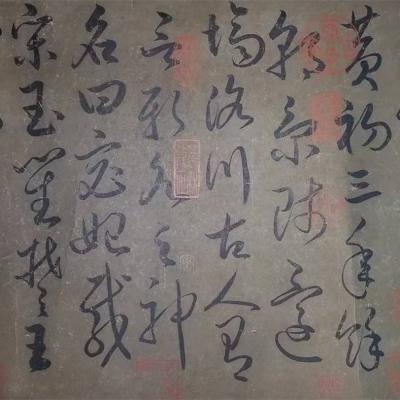 黃初三年餘
朝京師還
濟洛川古人有
言斯水之神
名曰宓妃感
宋玉對楚王